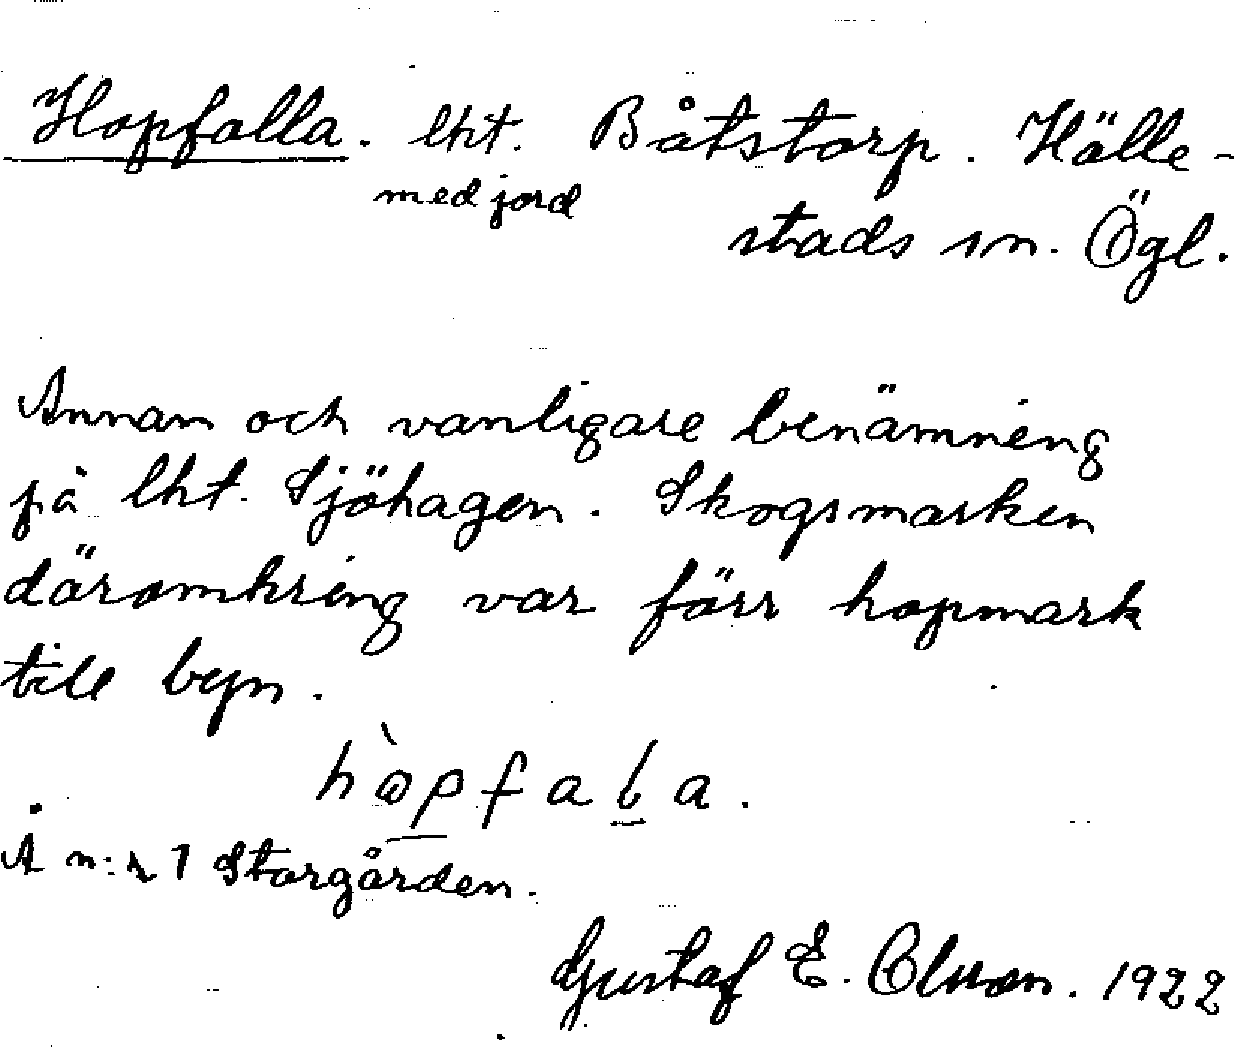 Hopfalla. lht. Båtstorp. Hälle-
med jord
stads sn. Ögl.
Annan och vanligare benämning
på lht. Sjöhagen. Skogsmarken
däromkring var förr hopmark
till byn.
hòpfala.
Å n:r 1 Storgården.
Gustaf E. Olsson. 1922